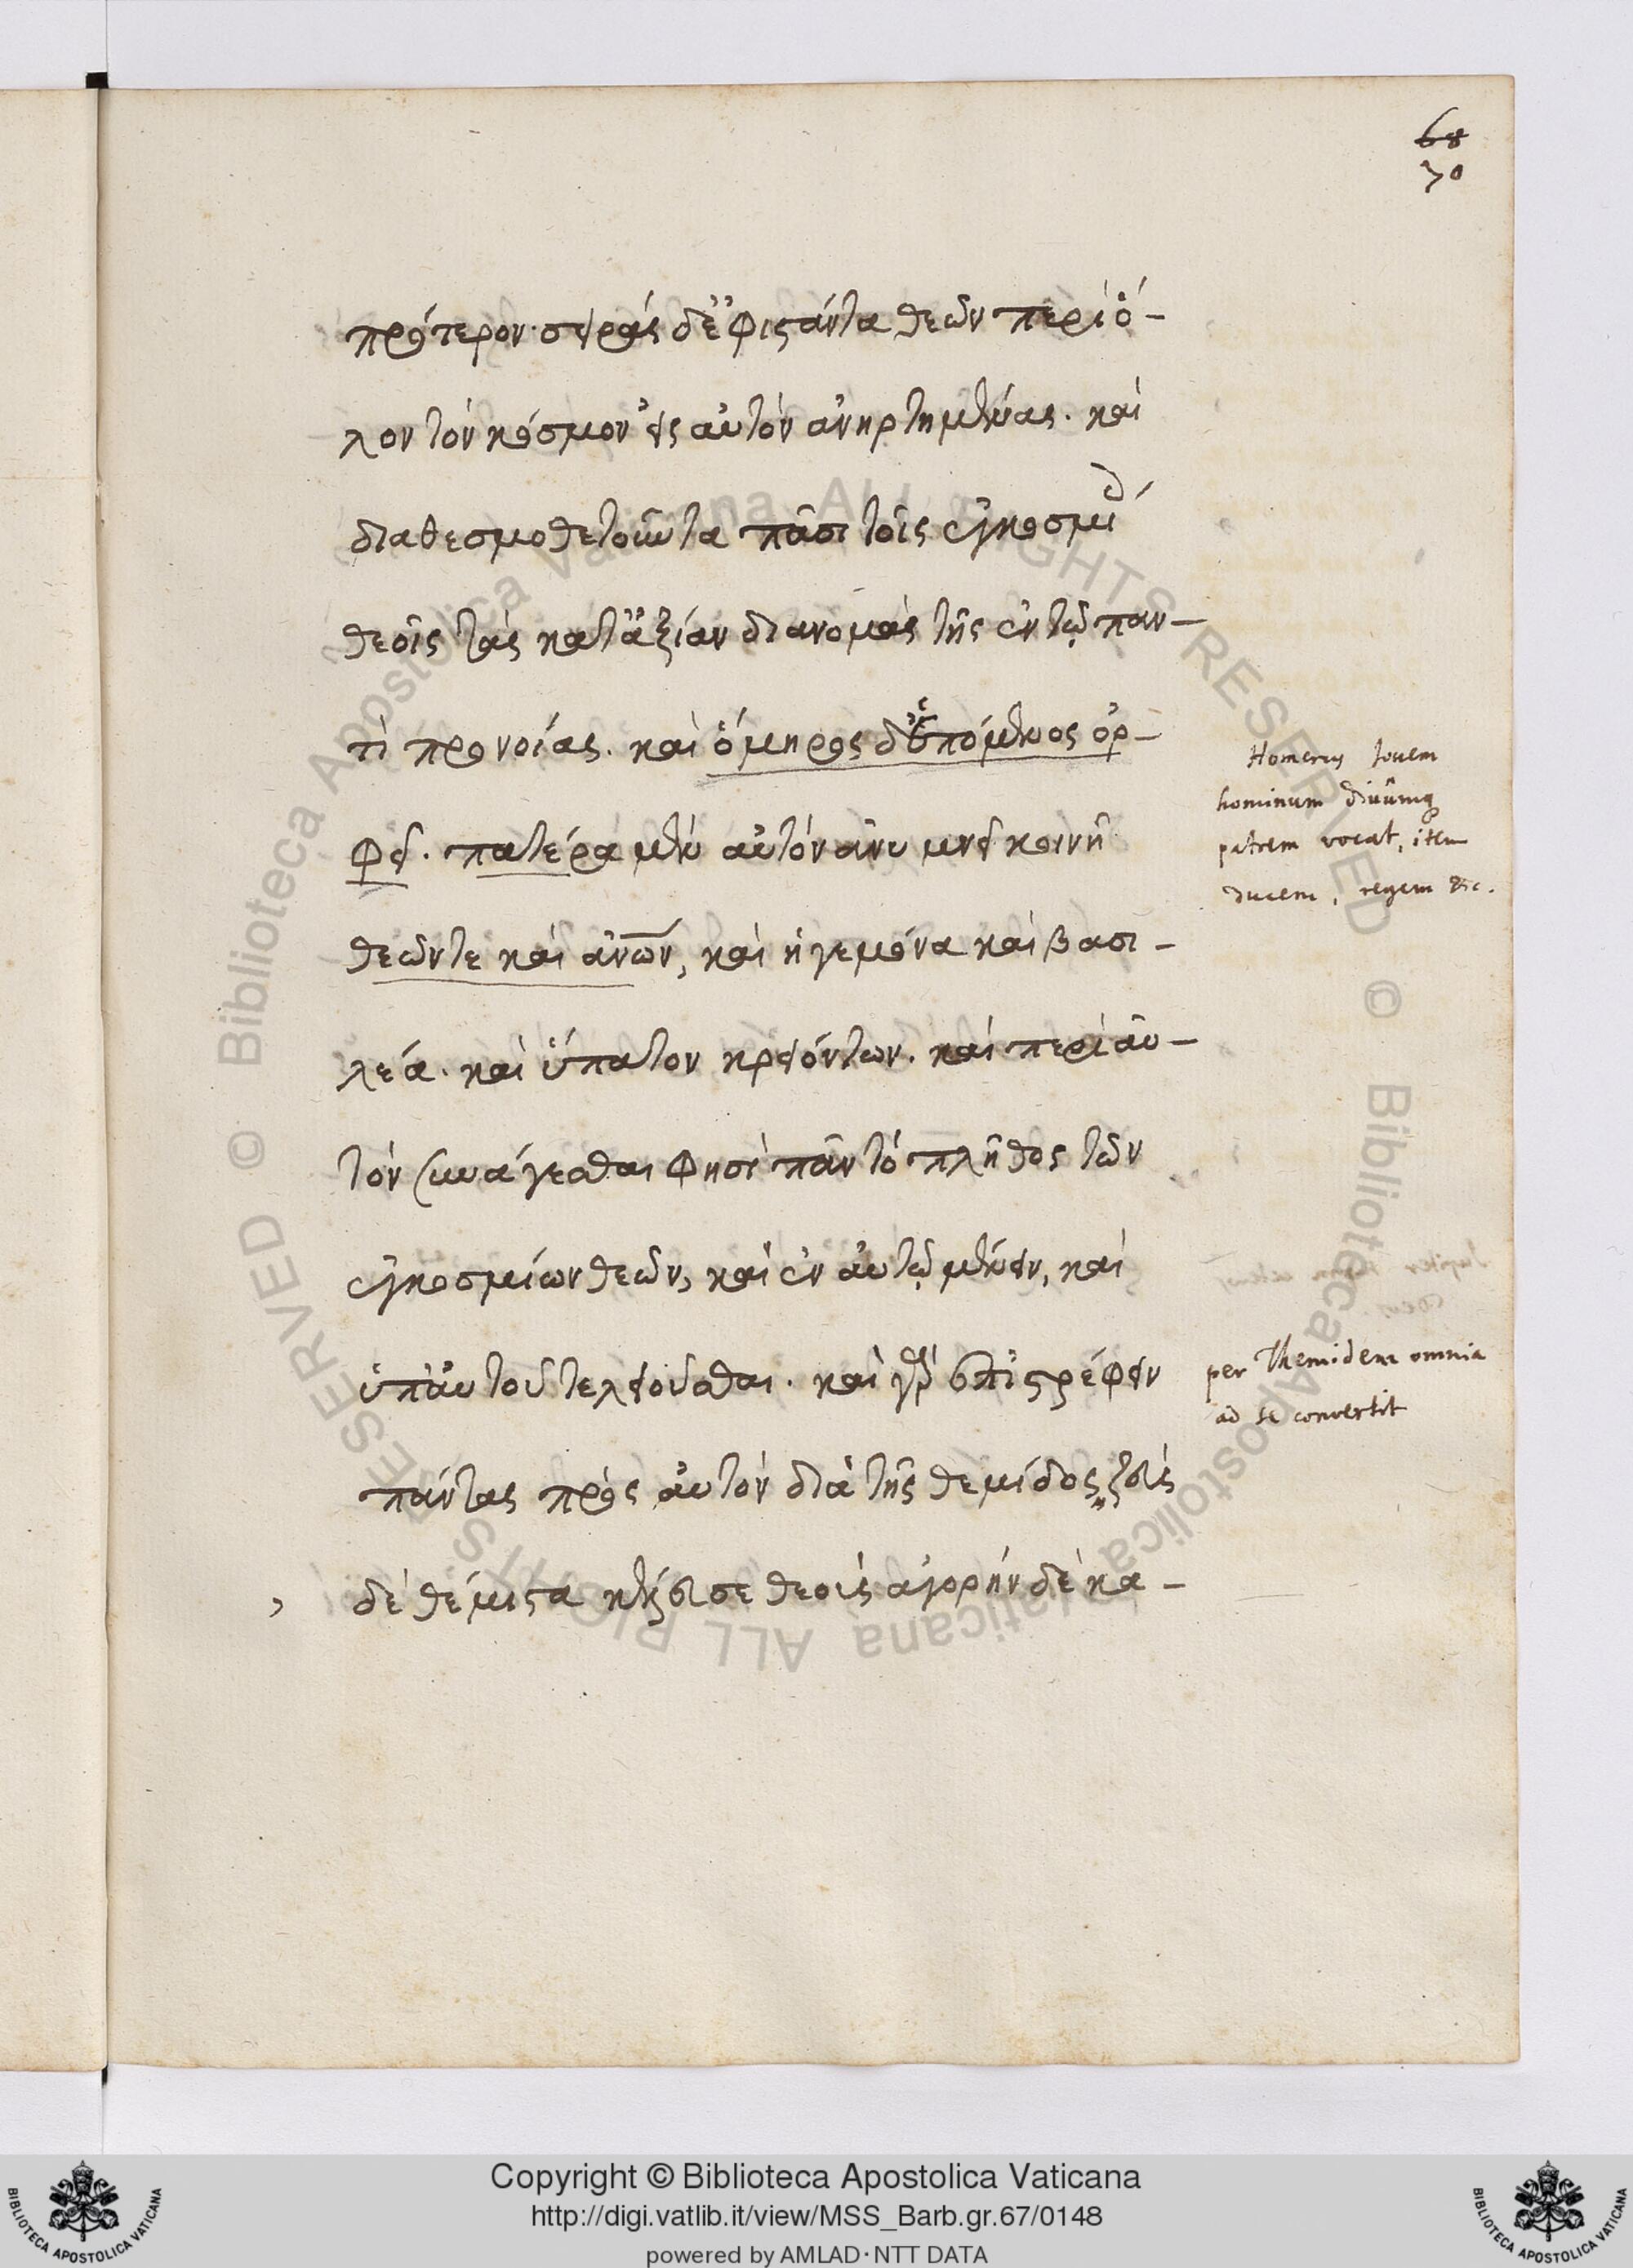 68
70
πρότερον· σειρὰς δ' ἐφιστάντα θεῶν περὶ ὅ-
λον τὸν κόσμον εἰς αὐτὸν ἀνηρτημένας. καὶ
διαθεσμοθετοῦντα πᾶσι τοῖς ἐγκοσμί
θεοῖς τὰς κατ' ἀξίαν διανομὰς τῆς ἐν τῷ παν-
τὶ προνοίας. καὶ ὅμηρος δ' ἑπόμενος ὀρ-
φεῖ. πατέρα μὲν αὐτὸν ἀνυμνεῖ κοινῇ
θεῶντε καὶ ἀνων, καὶ ἡγεμόνα καὶ βασι-
λέα. καὶ ὕπατον κρειόντων. καὶ περὶ αὐ-
τὸν συνάγεσθαι φησὶ πᾶν τὸ πλῆθος τῶν
ἐγκοσμίων θεῶν, καὶ ἐν αὐτῷ μένειν, καὶ
ὑπ' αὐτοῦ τελειοῦσθαι. καὶ γὰρ ἐπιστρέφειν
πάντας πρὸς αὐτὸν διὰ τῆς θέμιδος ζεὺς
δὲ θέμιστα κέλευσε θεοὺς ἀγορὴν δὲ κα-
Homerus Iouem
hominum diuûmq
patrem vocat, item
ducem, regem &c.
per Themidem omnia
ad se convertit
Copyright © Biblioteca Apostolica Vaticana
http://digi.vatlib.it/view/MSS_Barb.gr.67/0148
powered by AMLAD·NTT DATA
BIBLIOTECA APOSTOLICA VATICANA
BIBLIOTECA APOSTOLICA VATICANA
© Biblioteca Apostolica Vaticana ALL RIGHTS RESERVED
© Biblioteca Apostolica Vaticana ALL RIGHTS RESERVED